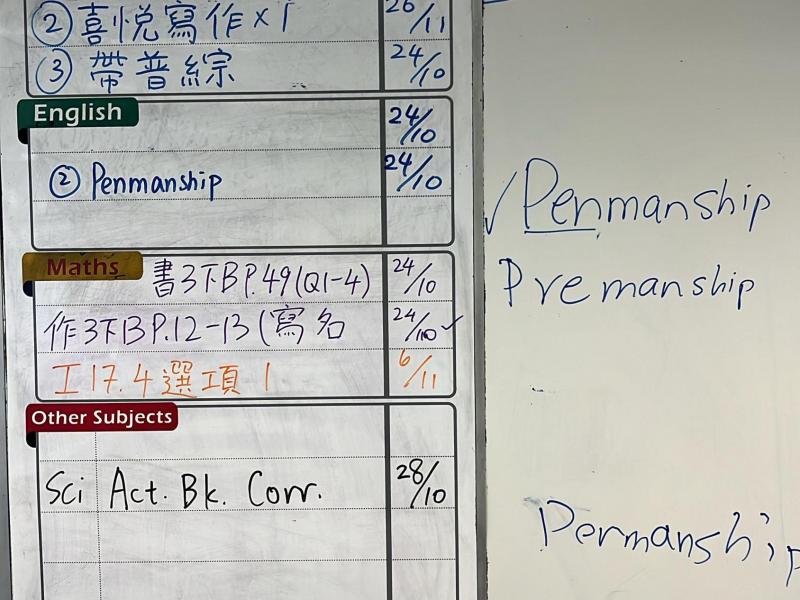 ② 喜悅寫作×1 26/11
③ 帶普綜 24/10
English
24/10
② Penmanship 24/10
Maths
書3下B P.49(Q1-4) 24/10
作3下B P.12-13(寫名 24/10 ✓
工17.4選項1 6/11
Other Subjects
Sci Act. Bk. Corr. 28/10
✓ Penmanship
Premanship
Permanship